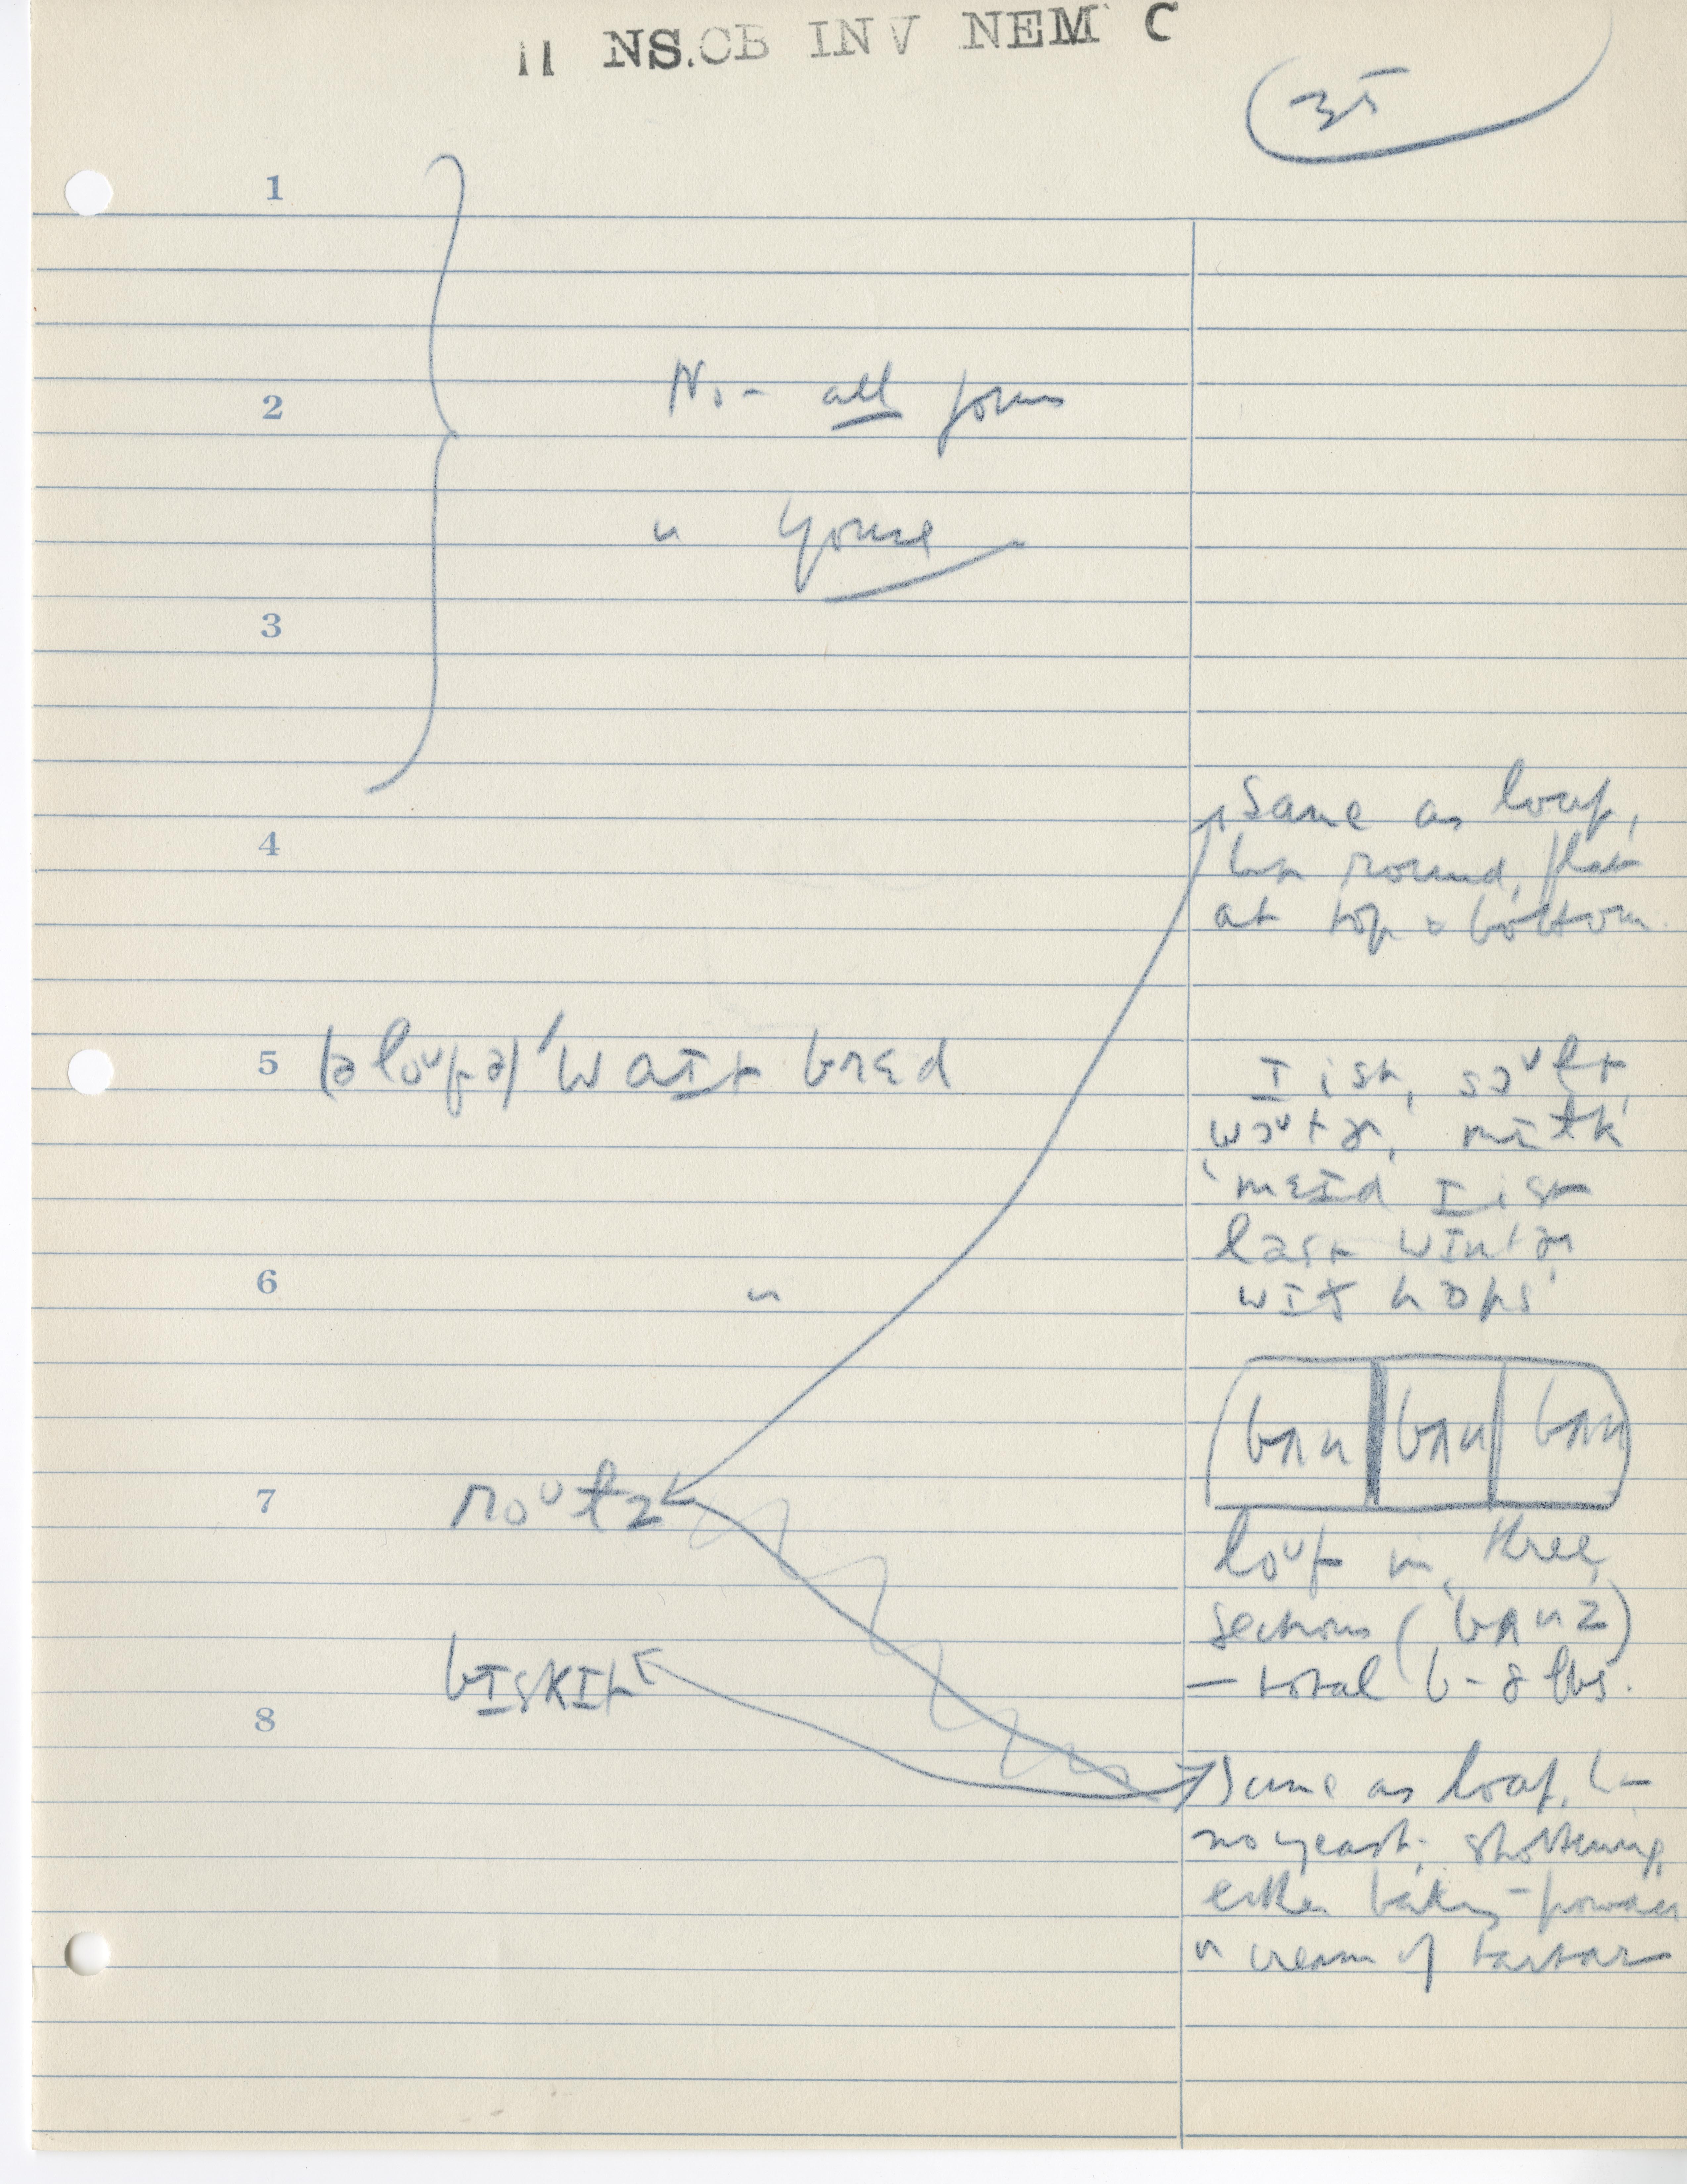 11 NS.CB INV NEM C
35
1
2 No - all forms
" youse
3
Same as loaf,
4
but round, flat
at top & bottom.
5 (ə loʊf ə) ˈwaɪt brɛd
ɪist, sɔʊɫt,
wɔʊtɚ, mɪɫk
ˈmeɪd ɪist
læst wɪntɚ
6 "
wɪt hɒps'
bʌn bʌn bʌn
7 roʊɫz
loʊf in three
sections (ˈbʌnz)
— total 6-8 lbs.
bɪskɪt
8
Same as loaf,
no yeast; shortening,
either baking-powder
or cream of tartar